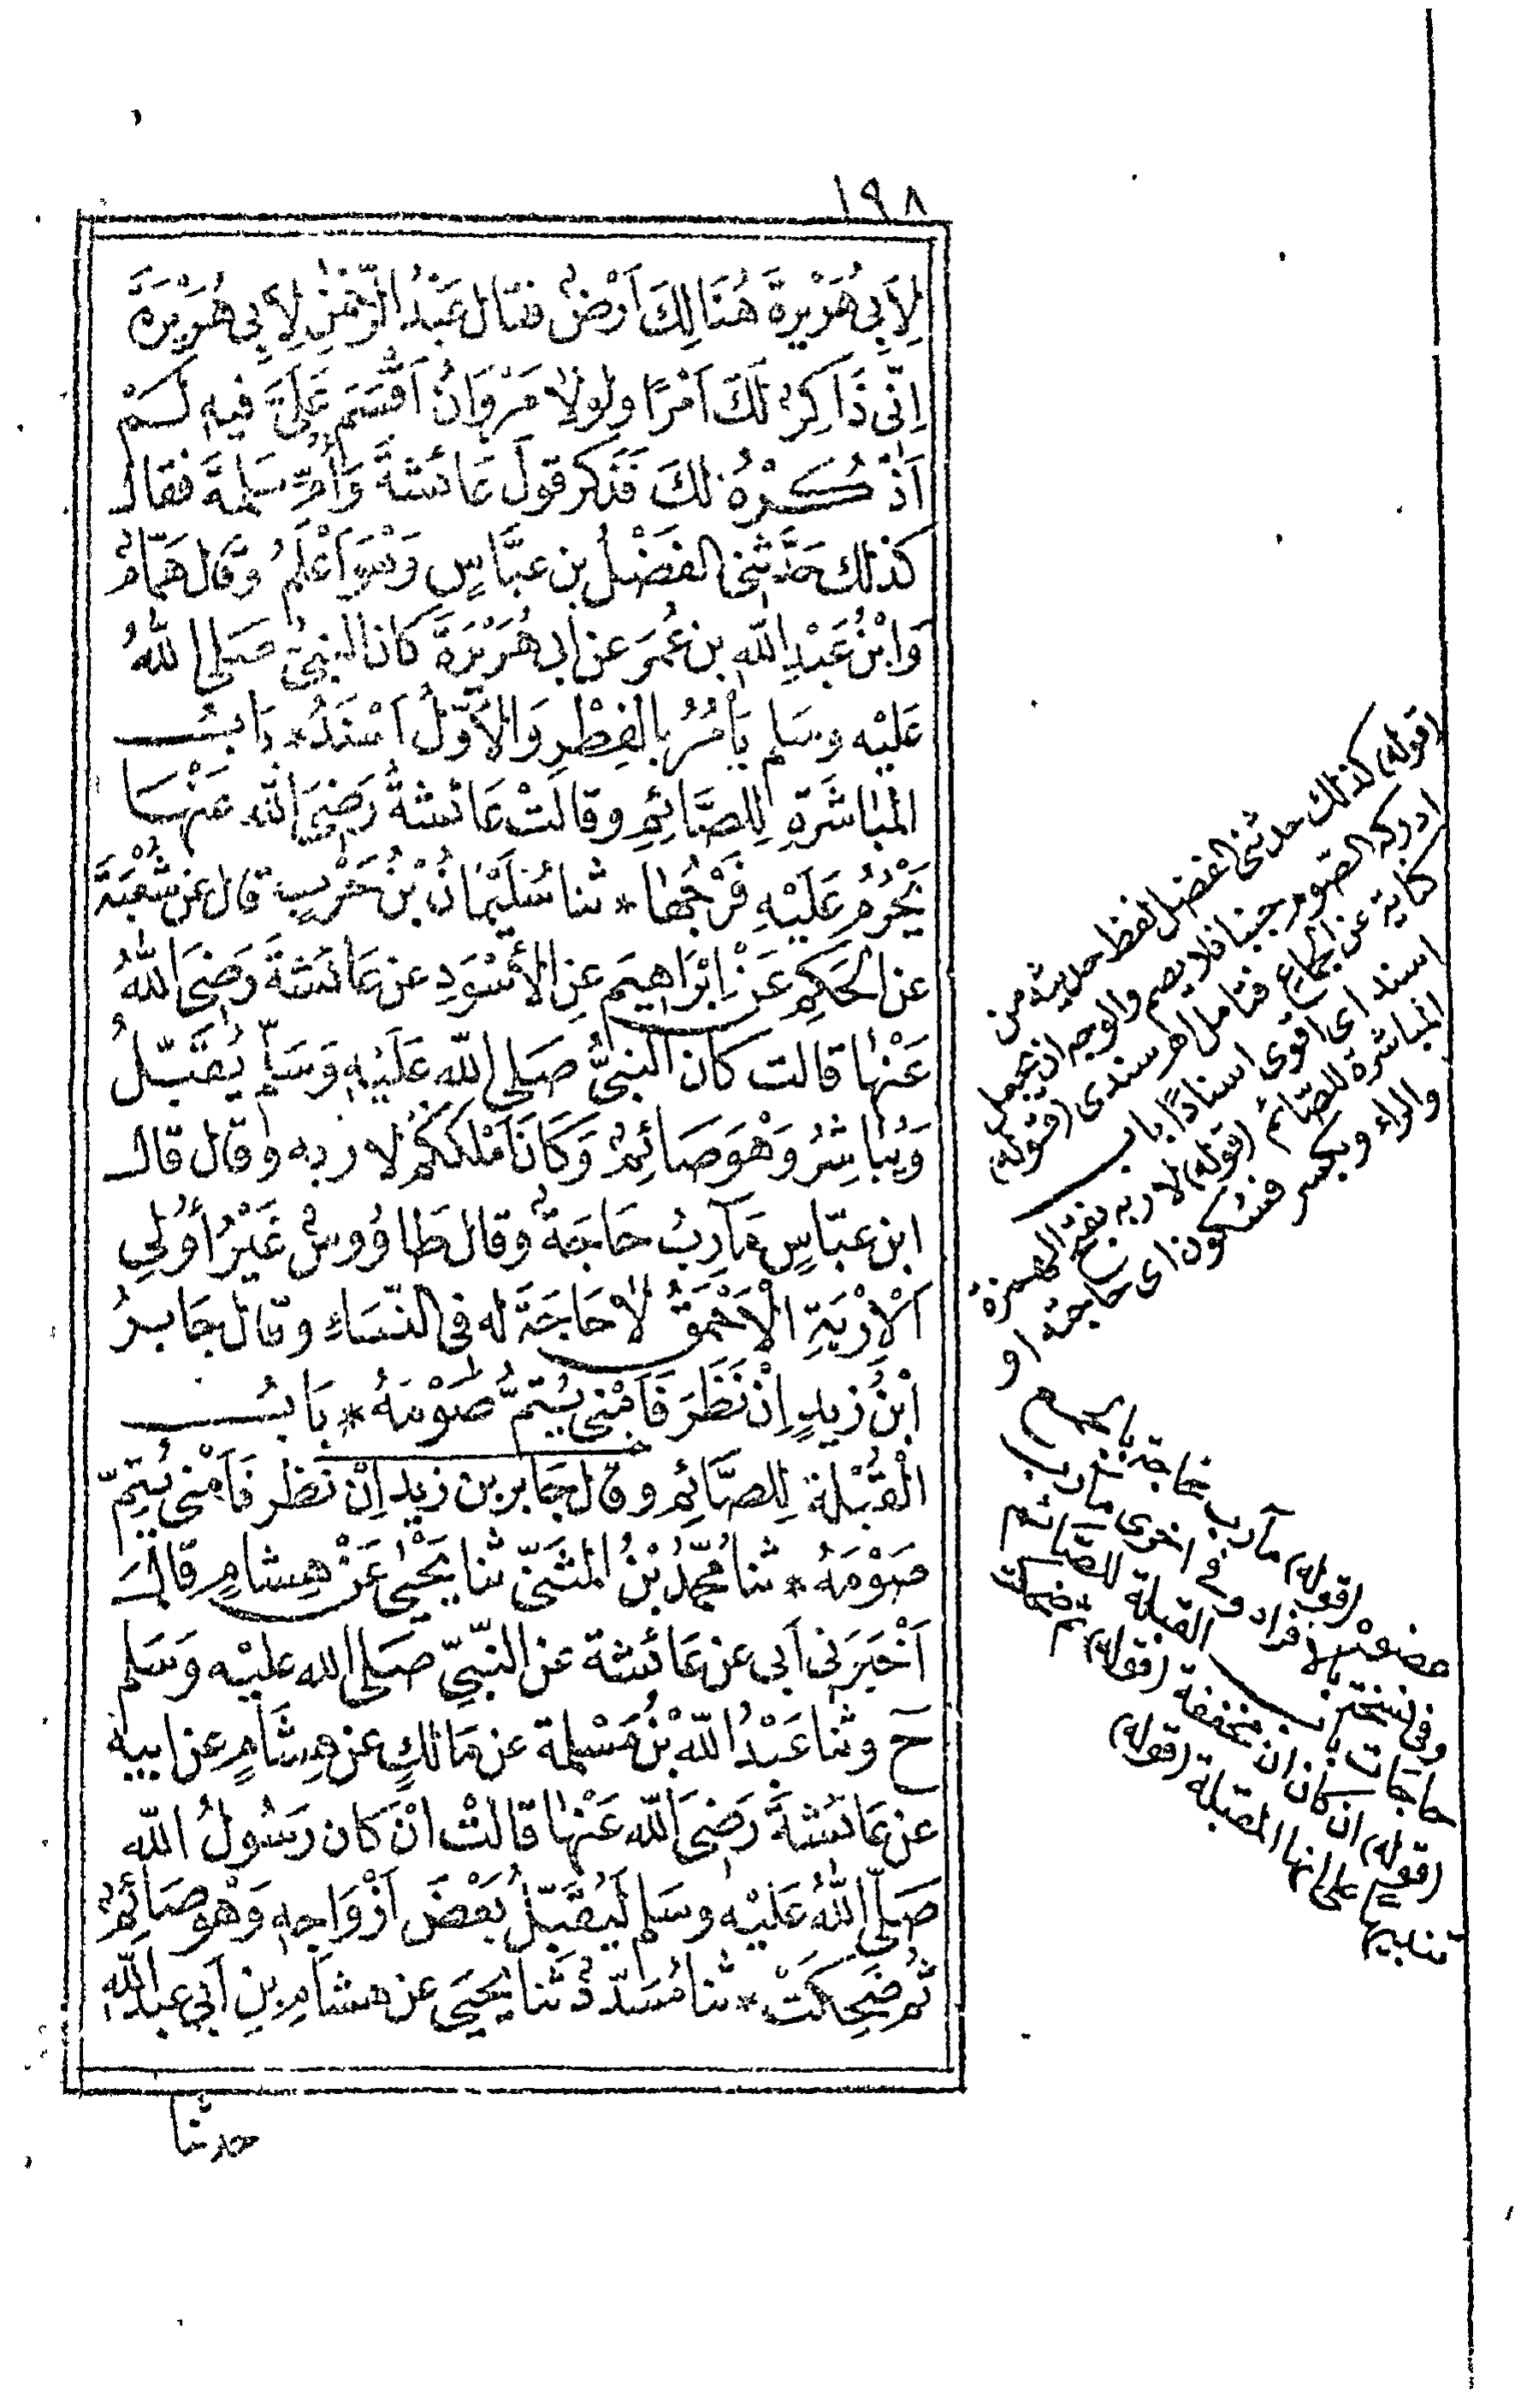 ١٩٨
لِأَبِي هُرَيْرَةَ هُنَالِكَ أَرْضٌ فقال عَبْدُ الرَّحْمٰنِ لِأَبِي هُرَيْرَةَ
إِنِّي ذَاكِرٌ لَكَ أَمْرًا ولولا مَرْوَانُ أَقْسَمَ عَلَيَّ فيه لَمْ
أَذْكُرْهُ لكَ فَذَكر قولَ عَائشةَ وَأُمِّ سَلِمةَ فقال
كذلك حَدَّثَني الفَضْلُ بن عبَّاسٍ وَهْوَ أَعْلَمُ وَقَال هَمَّامٌ
وَابْنُ عَبْدِ اللّٰهِ بن عُمَرَ عن ابى هُرَيْرَةَ كانَ النبيُّ صَلى اللهُ
عَلَيْه وسَلم يَأْمُرُ بالفِطْرِ وَالأَوَّلُ أَسْنَدُ * بَابُ
الْمُبَاشَرَةِ لِلصَّائِمِ وقالَتْ عَائشةُ رَضِيَ اللّٰه عَنْهَا
يَحْرُمُ عَلَيْهِ فَرْجُهَا * ثنا سُلَيْمَانُ بْنُ حَرْبٍ قال عن شُعْبَةَ
عن الحَكِمِ عَنْ إِبْرَاهِيمَ عنِ الأَسْوَدِ عن عَائشَةَ رَضِيَ اللهُ
عَنْهَا قالت كانَ النبيُّ صَلى اللّٰه عَلَيْهِ وَسَلَّم يُقَبِّلُ
وَيُبَاشِرُ وَهْوَ صَائِمٌ وَكَانَ أَمْلَكَكُمْ لأربه وقال قال
ابن عبَّاسٍ مَآرِبُ حَاجَةٌ وقال طَاوُوسٌ غَيْرُ أُولِي
الْإِرْبَةِ الْأَحْمَقُ لَا حَاجَةَ له فى النِّسَاء وقال جَابِرُ
ابْنُ زيدٍ إِنْ نَظَرَ فَأَمْنى يُتِمُّ صَوْمَهُ * بَابُ
الْقُبْلةِ لِلصَّائِمِ وقال جَابر بن زيد إِنْ نظر فَأَمْنى يُتِمُّ
صَوْمَهُ * ثنا مُحَمَّدُ بْنُ المُثَنَّى ثنا يَحْيَى عَنْ هِشامٍ قال
أَخْبَرَنى أَبى عن عَائشة عن النَّبِيِّ صَلى الله عليْه وَسَلم
ح وثنا عَبْدُ اللّٰه بْنُ مَسْلمة عن مَالكٍ عن هِشَامٍ عن ابيه
عن عَائشةَ رَضيَ اللّٰه عَنْهَا قالتْ انْ كَان رَسُولُ اللّٰه
صَلى اللّٰهُ عَلَيْه وسَلم لَيُقَبِّلُ بَعْضَ أَزْوَاجِهِ وَهْوَ صَائِمٌ
ثُمَّ ضَحِكَتْ * ثنا مُسَدَّدٌ ثنا يَحْيَى عن هشَامِ بنِ أَبى عبد اللّٰه
حدثنا
(قوله) كذلك حدثنى الفضل لفظ حديثه من
ادركه الصوم جنبا فلا يصم والوجه ان يحمل
كناية عن الجماع فتامل اهـ سندى (قوله)
اسند اى اقوى اسنادًا باب
المباشرة للصّائم (قوله) لاربه بفتح الهمزة
والراء وبكسر فسكون اى حاجته او
(قوله) مآرب حاجة بالجيم
القبلة للصّائم
(قوله) ان كان ان مخففة (قوله) ثم ضحكت
تنبيها على انها المقبلة (قوله)